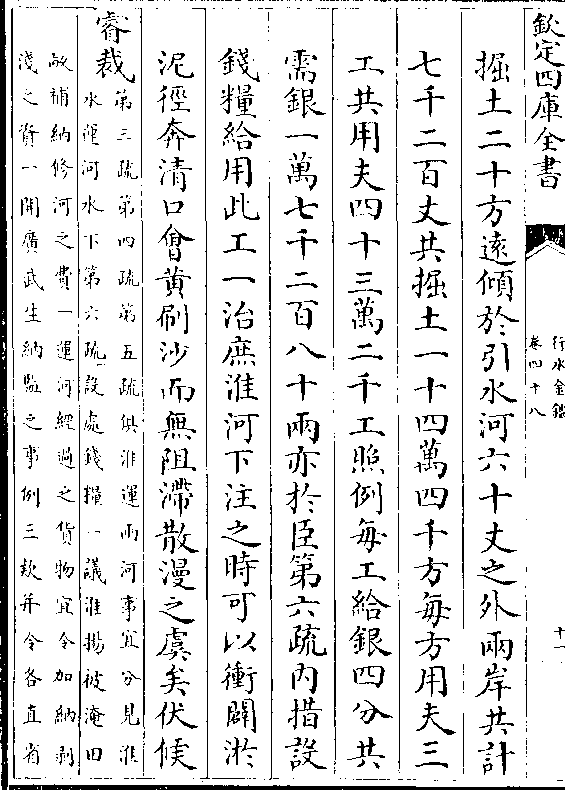 欽定四庫全書
行水金鑑
卷四十八
十一
掘土二十方遠傾於引水河六十丈之外兩岸共計
七千二百丈共掘土一十四萬四千方每方用夫三
工共用夫四十三萬二千工照例每工給銀四分共
需銀一萬七千二百八十兩亦於臣第六疏內措設
錢糧給用此工一治庶淮河下注之時可以衝闢淤
泥徑奔清口會黃刷沙而無阻滯散漫之虞矣伏候
睿裁
第三疏第四疏第五疏俱淮運兩河事宜分見淮
水運河水下第六疏設處錢糧一議淮揚被淹田
畝補納修河之費一運河經過之貨物宜令加納剝
淺之資一開廣武生納監之事例三款并令各直省